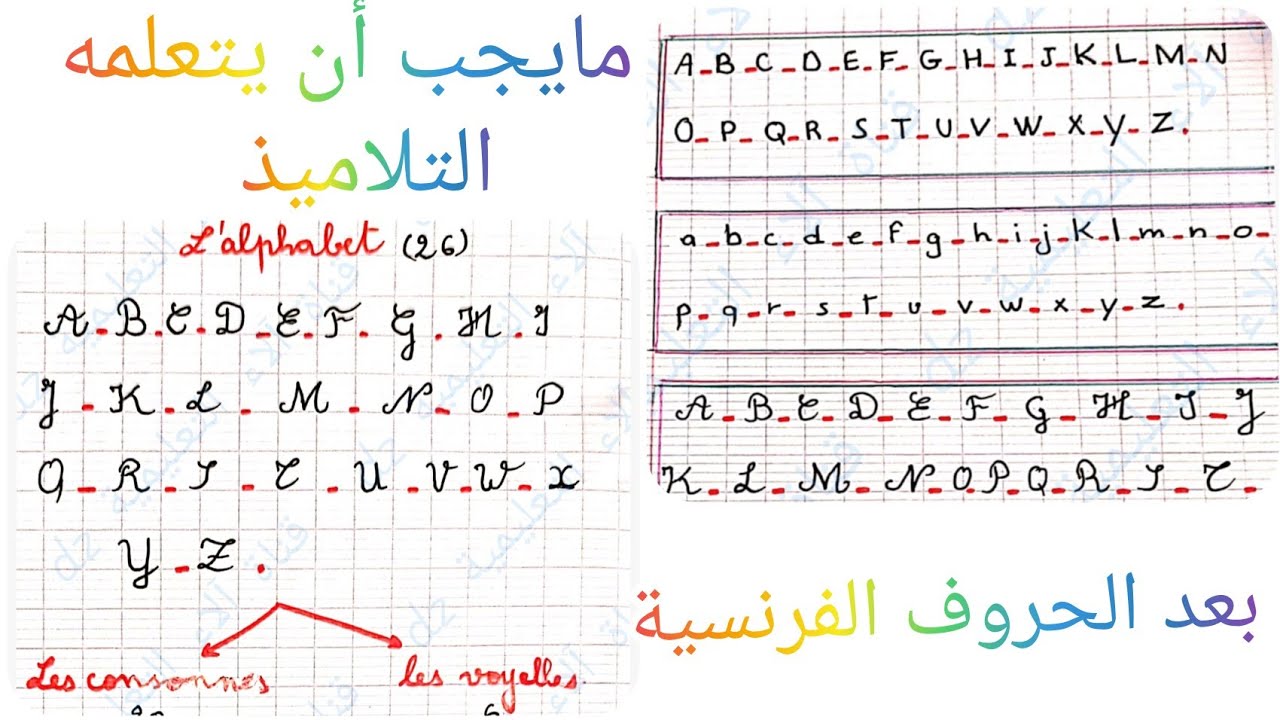 مايجب أن يتعلمه
التلاميذ
L'alphabet (26)
A_B_C_D_E_F_G_H_I
J_K_L_M_N_O_P
Q_R_S_T_U_V_W_X
Y_Z.
Les consonnes les voyelles
20 6
A_B_C_D_E_F_G_H_I_J_K_L_M_N
O_P_Q_R_S_T_U_V_W_X_Y_Z.
a_b_c_d_e_f_g_h_i_j_k_l_m_n_o_
p_q_r_s_t_u_v_w_x_y_z.
A_B_C_D_E_F_G_H_I_J
K_L_M_N_O_P_Q_R_S_T_
بعد الحروف الفرنسية
قناة آلاء التعليمية dz